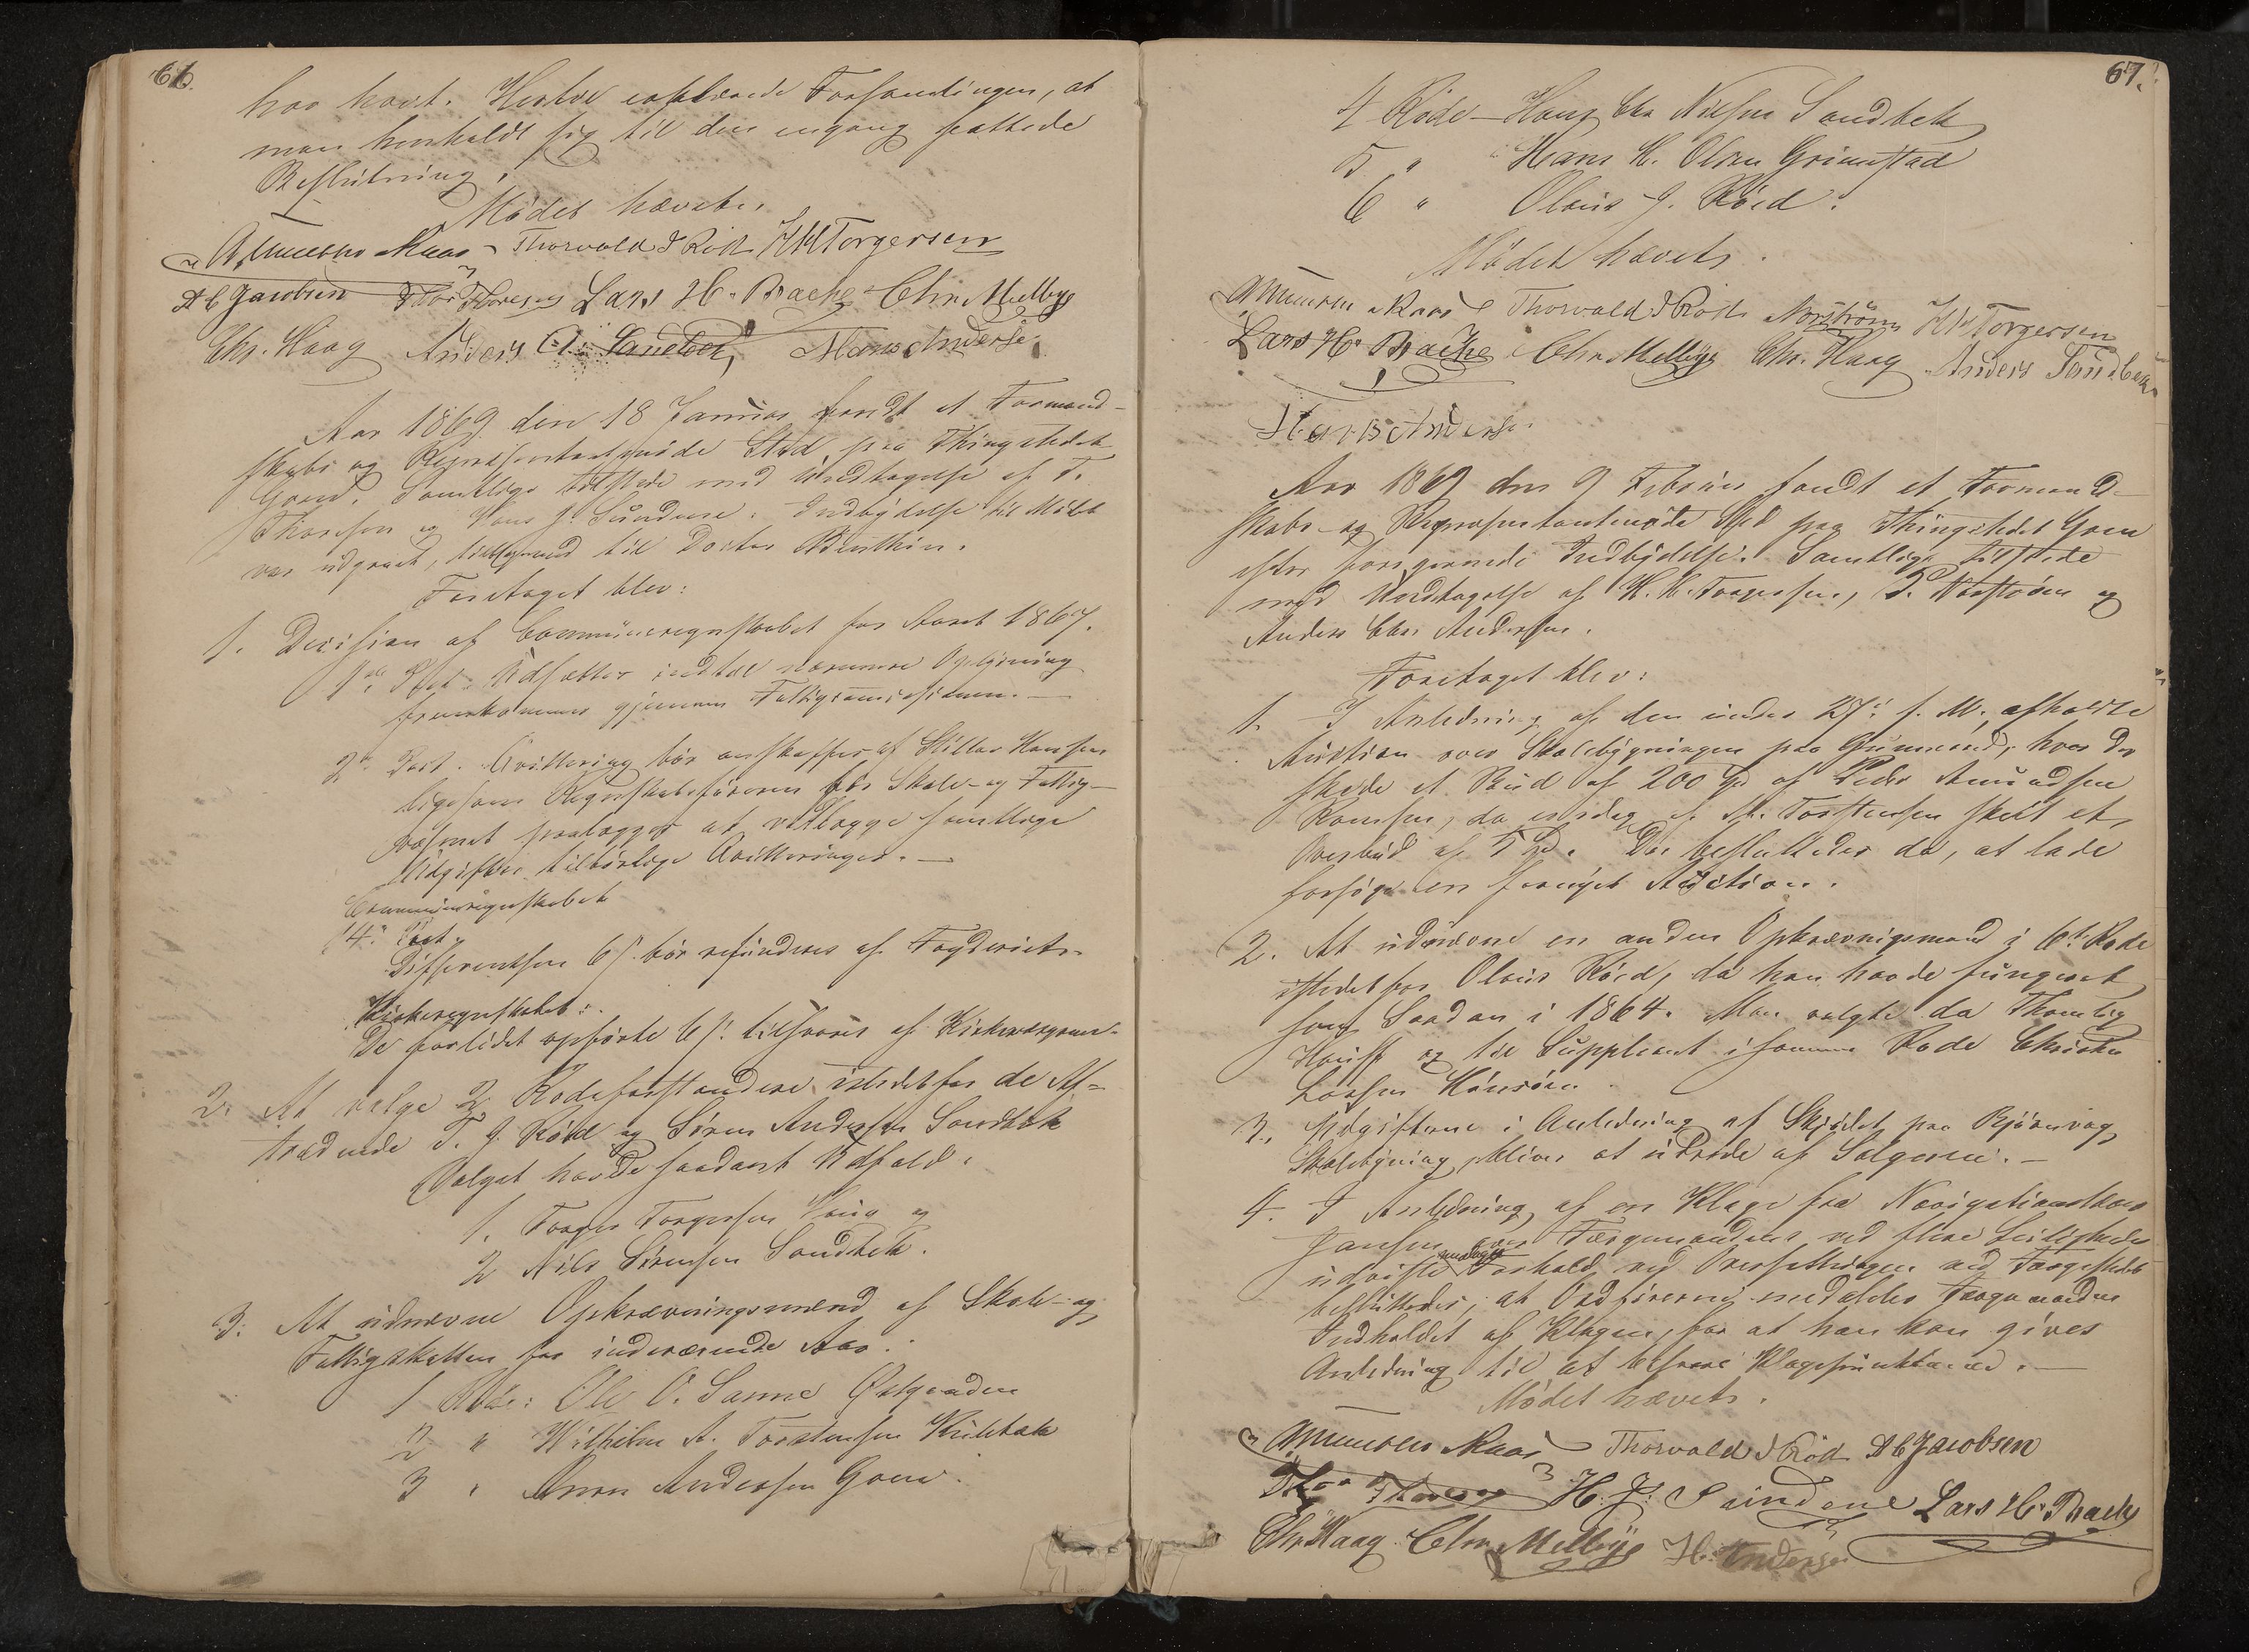 66.
har havt. Hertil erklærede Forsamlingen, at
man henholdt sig til den engang fattede
Beslutning.
Mødet hævet.
Amundsen Raas Thorvald J Röd H H Torgersen
A C Jacobsen Thor Thoresen Lars H. Bache Chr. Melbye
Chr. Haag Anders Sandbek Hans Andersen
Aar 1869 den 18 Januar fandt et Formand-
skabs og Repræsentantmøde Sted paa Thingstedet
Grav. Samtlige tilstede med Undtagelse af T.
Thoresen og Hans J. Sundene. Indbydelse til Mødet
var udgaaet, tillige med til Doctor Benthin.
Foretaget blev:
1. Decision af Communeregnskabet for Aaret 1867.
1ste Post. Udsættes indtil nærmere Oplysning
fremkommer gjennem Fattigcommissionen. —
2den Post. Qvittering bör anskaffes af Hansen
ligesom Regnskabsföreren for Skole- og Fattig-
væsenet paalægges at vedlægge samtlige
Udgifter tilbørlige Qvitteringer. —
Communeregnskabet
14de Post.
Differentsen 6 s. bör refunderes af Fogderiets
Kirkeregnskabet:
De forlidet opförte 6 s. tilsvares af Kirkeværgerne.
2. At velge 2 Rodeforstandere istedetfor de Af-
trædende T. J. Röd og Sören Andersen Sandbek
Valget havde saadant Udfald:
1. Torger Torgersen Haug og
2 Nils Sörensen Sandbek.
3. At udnævne Opkrævningsmænd af Skole- og
Fattigskatten for indeværende Aar.
1 Rode: Ole O. Sanne Östgaarden
2 " Wilhelm A. Torstensen Kulebek
3 " Andersen Grav.
67.
4 Rode — Hans Chr Nilsen Sandbek
5 " Hans H. Olsen Grimstad
6 " Olaus J. Röed.
Mödet hævet.
Amundsen Raas Thorvald J Röd Norström H H Torgersen
Lars H. Bache Chr. Melbye Chr. Haag Anders Sandbek
Hans Andersen
Aar 1869 den 9 Februar fandt et Formand-
skabs- og Repræsentantmöde Sted paa Thingstedet Grav
efter foregaaende Indbydelse. Samtlige tilstede
med Undtagelse af H. H. Torgersen, P. Norström og
Anders Chr. Andersen.
Foretaget blev:
1. I Anledning af den under 27de f. M. afholdte
Auction over Skolebygningen paa Grimstad, hvor der
skede et Bud af 200 Spd af Peder Amundsen
Ramsen, da er idag af A. Torstensen skeet et
Overbud af 5 Spd. Der besluttedes da, at lade
forsøge en fornyet Auction.
2. At udnævne en anden Opkrævningsmand i 6te Rode
istedetfor Olaus Röed, da han havde fungeret
som Saadan i 1864. Man valgte da Thomas
og til Suppleant i samme Rode Christen
Larsen
3. Udgifterne i Anledning af Skjödet paa Björnevaag
Skolebygning bliver at udrede af Sælgeren. —
4. I Anledning af en Klage fra Navigationslærer
Jansen over Færgemandens ved flere Leiligheder
udviste Forhold ved Oversætningen ved Færgestedet
besluttedes, at Ordföreren meddeler Færgemanden
Indholdet af Klagen, for at han kan gives
Anledning til at besvare Klagepunkterne. —
Mödet hævet.
Amundsen Raas Thorvald J Röd A C Jacobsen
Thor Thoresen H. J. Sundene Lars H. Bache
Chr. Haag Chr. Melbye H. Andersen